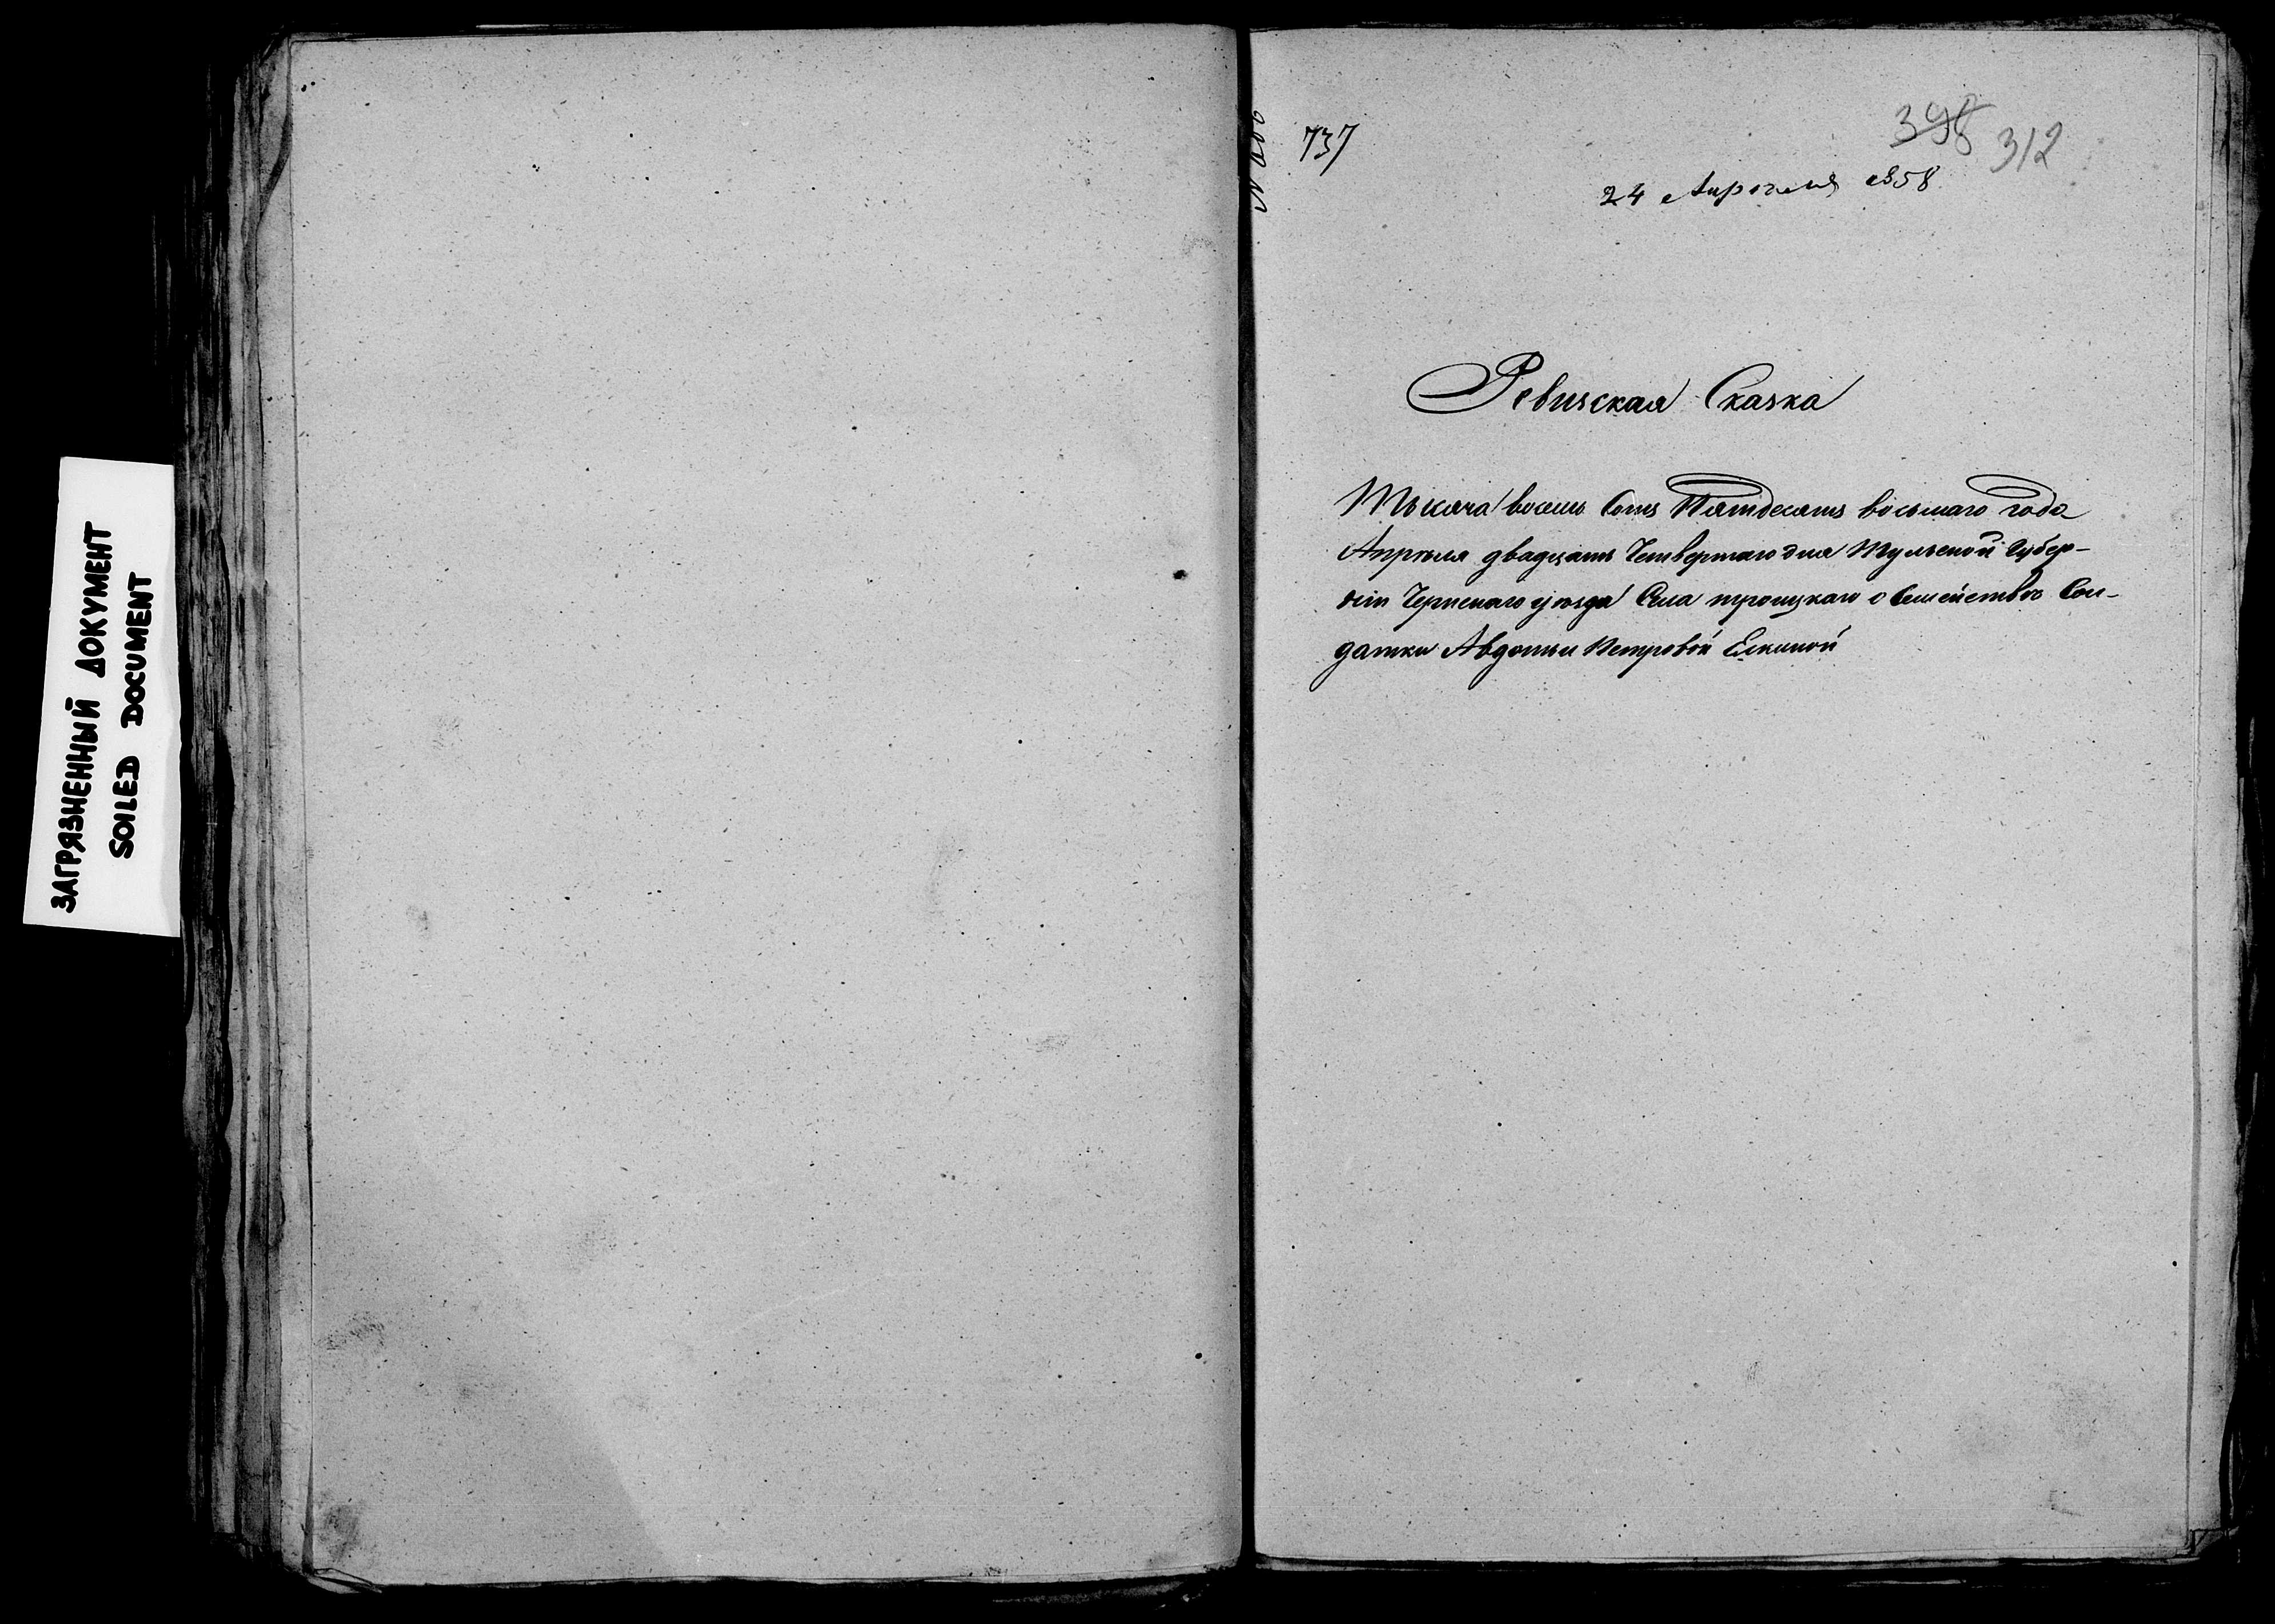 ЗАГРЯЗНЕННЫЙ ДОКУМЕНТ
SOILED DOCUMENT
737
398 312
24 Апрѣля 1858
Ревизская Сказка
Тысяча восемь Сотъ Пятдесятъ восьмаго года
Апрѣля двадцать Четвертаго дня Тульской Губер-
ніи Чернскаго уѣзда Села троицкаго о Семействѣ Сол-
датки Авдотьи Петровой